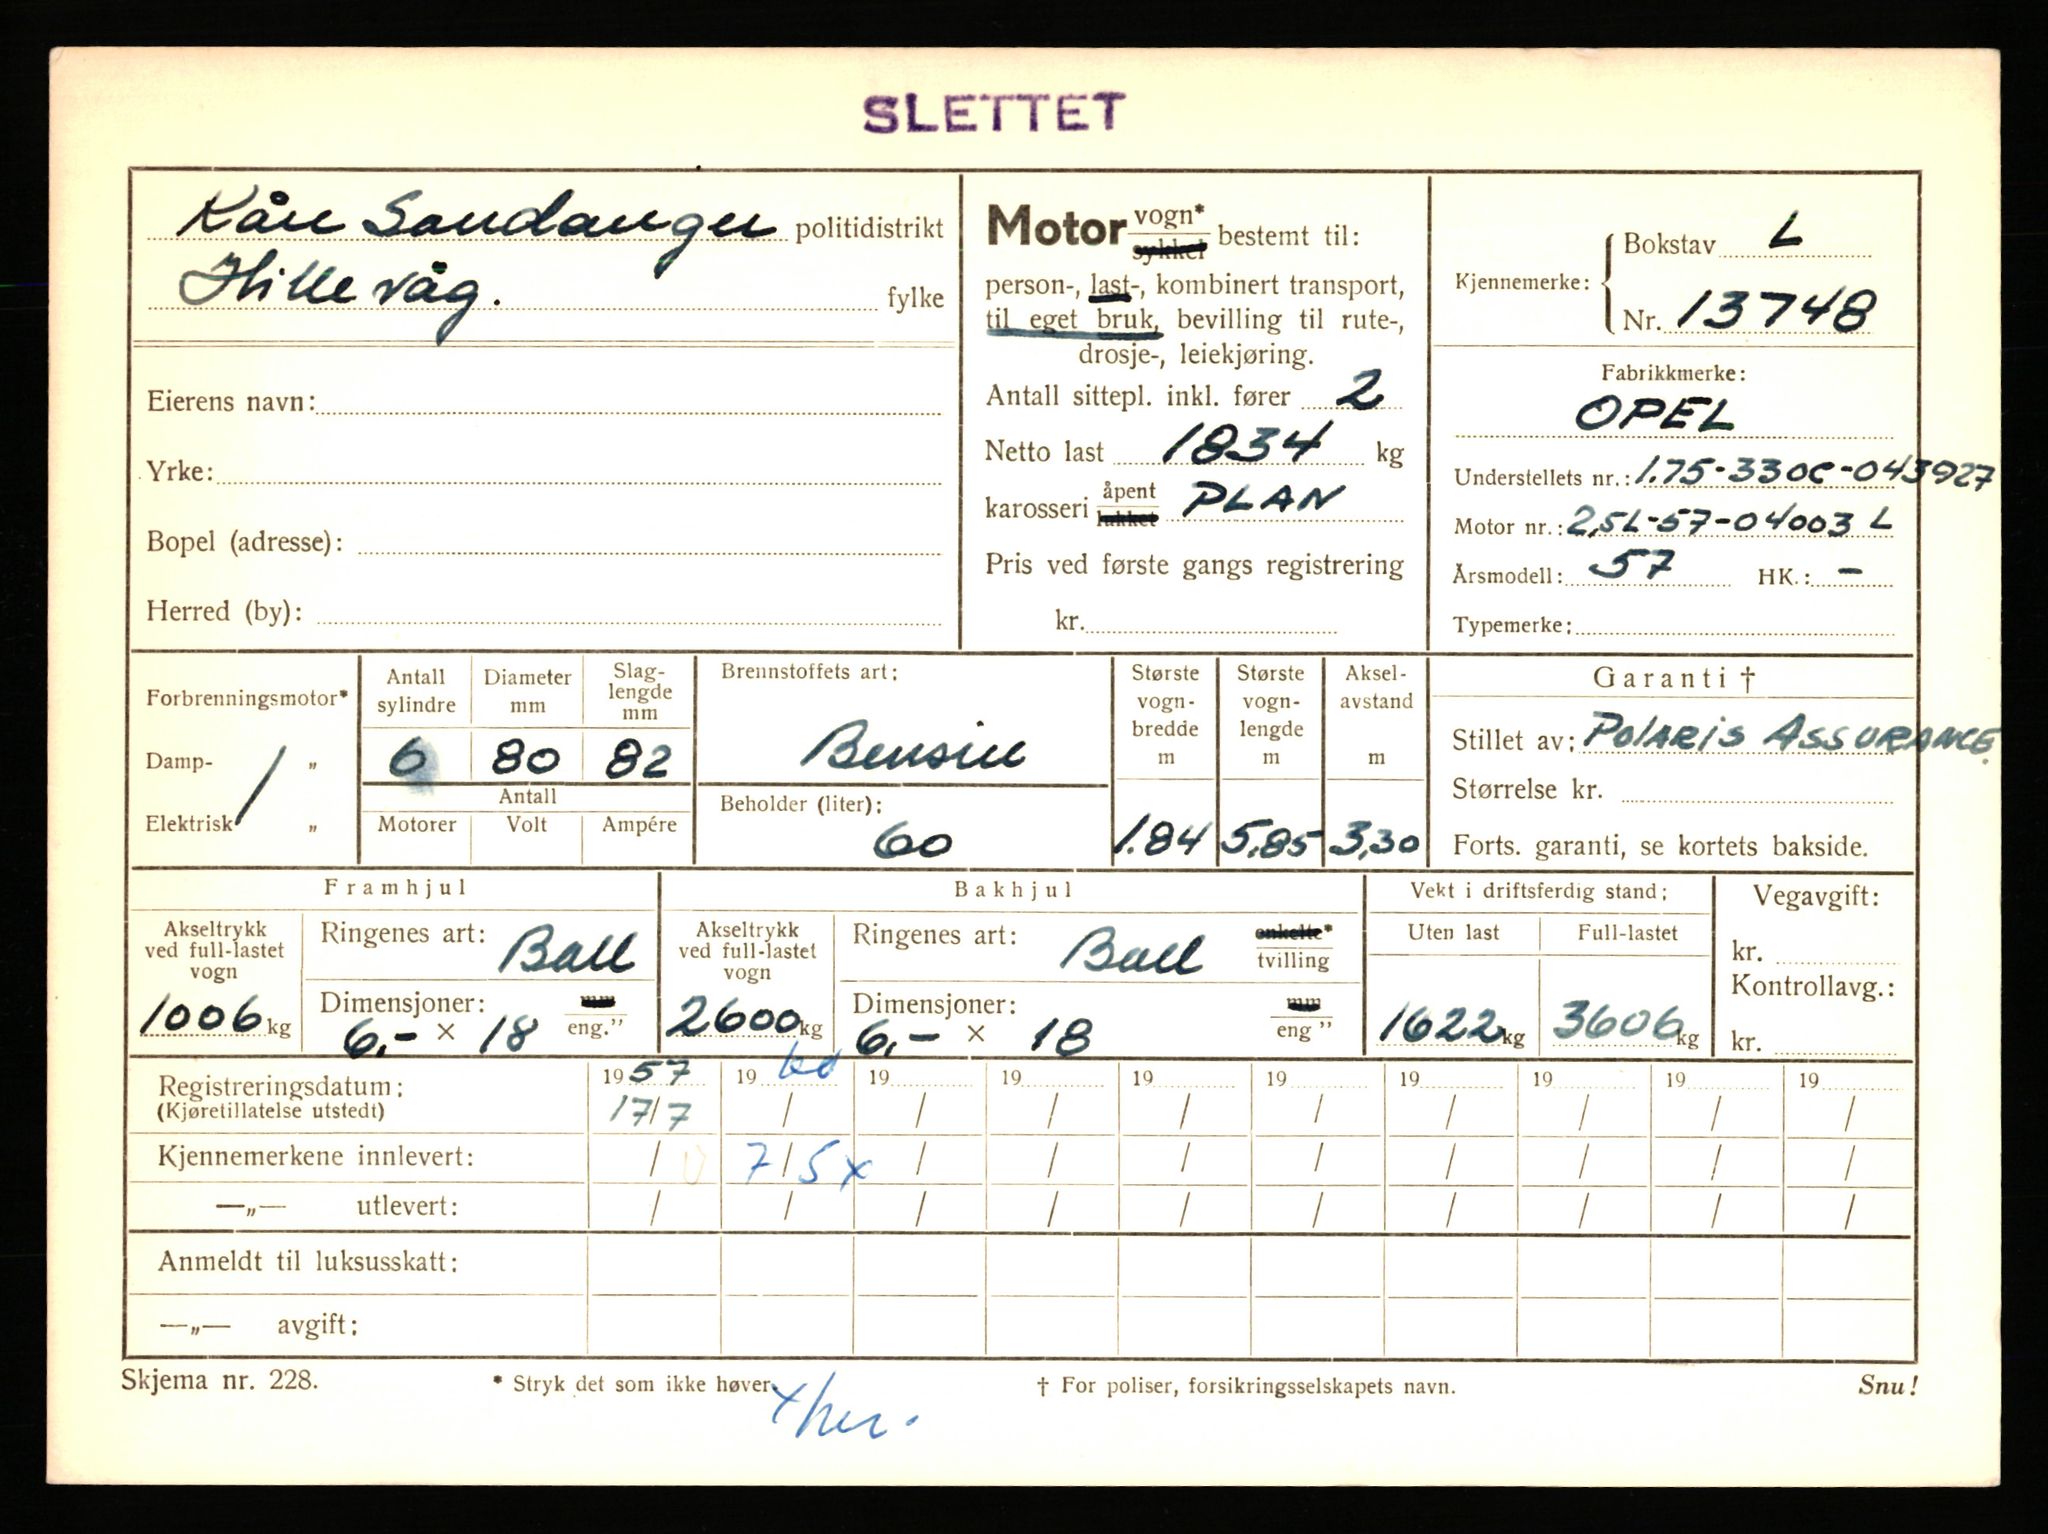 SLETTET
Kåre Sandanger politidistrikt
Hillevåg. fylke
Eierens navn:
Yrke:
Bopel (adresse):
Herred (by):
Motor vogn* sykkel bestemt til:
person-, last-, kombinert transport,
til eget bruk, bevilling til rute-,
drosje-, leiekjøring.
Antall sittepl. inkl. fører 2
Netto last 1834 kg
karosseri åpent lukket PLAN
Pris ved første gangs registrering
kr.
Kjennemerke: Bokstav L
Nr. 13748
Fabrikkmerke:
OPEL
Understellets nr.: 1.75-330C-043927
Motor nr.: 2,5L-57-04003 L
Årsmodell: 57 HK.: -
Typemerke:
Forbrenningsmotor*
Damp- "
Elektrisk "
Antall sylindre Diameter mm Slag-lengde mm
6 80 82
Antall
Motorer Volt Ampére
Brennstoffets art:
Bensin
Beholder (liter):
60
Største vogn-bredde m Største vogn-lengde m Aksel-avstand m
1.84 5,85 3,30
Garanti †
Stillet av: POLARIS ASSURANCE.
Størrelse kr.
Forts. garanti, se kortets bakside.
Framhjul
Akseltrykk ved full-lastet vogn
1006 kg
Ringenes art: Ball
Dimensjoner: mm
6,- × 18 eng."
Bakhjul
Akseltrykk ved full-lastet vogn
2600 kg
Ringenes art: Ball enkelte* tvilling
Dimensjoner: mm
6,- × 18 eng "
Vekt i driftsferdig stand:
Uten last Full-lastet
1622 kg 3606 kg
Vegavgift:
kr.
Kontrollavg.:
kr.
Registreringsdatum: 1957 1960 19 19 19 19 19 19 19 19
(Kjøretillatelse utstedt) 17/7 / / / / / / / / /
Kjennemerkene innlevert: / 7/5 x / / / / / / / /
—„— utlevert: / / / / / / / / / /
Anmeldt til luksusskatt:
—„— avgift:
Skjema nr. 228. * Stryk det som ikke høver. † For poliser, forsikringsselskapets navn. Snu!
x her.